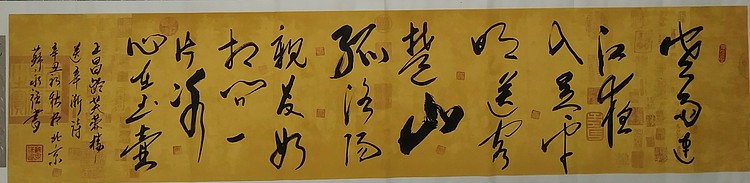 寒雨連
江夜
入吴平
明送客
楚山
孤洛陽
親友如
相问一
片冰
心在玉壺
王昌龄芙蓉樓
送辛渐诗
辛丑初秋於北京
蘇永强書